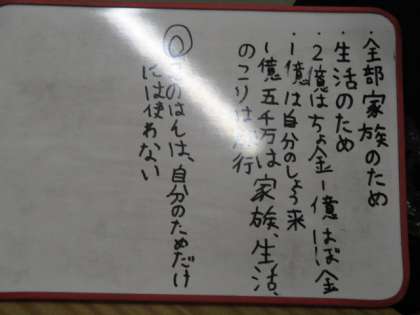 ・全部家族のため
・生活のため
・2億はちょ金一億はぼ金
・1億は自分のしょう来
・一億五千万は家族、生活、
のこりは行
◎のはんは、自分のためだけ
には使わない